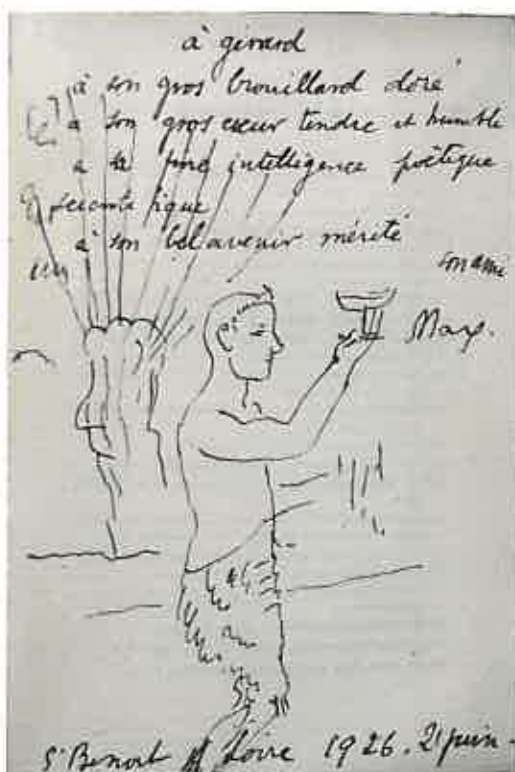 à gérard
à son gros brouillard doré
à son gros cœur tendre et humble
à sa fine intelligence poëtique
scientifique
à son bel avenir mérité
son ami
Max.
St Benoit s/ Loire 1926. 21 juin.